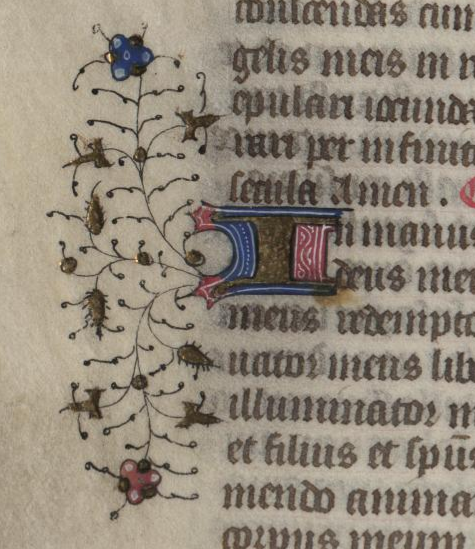 conscendas cum
gelis meis in n
epulari iocunda
rari per infinit
secula Amen.
In manus
deus me
meus redempto
uator meus lib
illuminator n
et filius et spūs
mendo anima
corpus meum